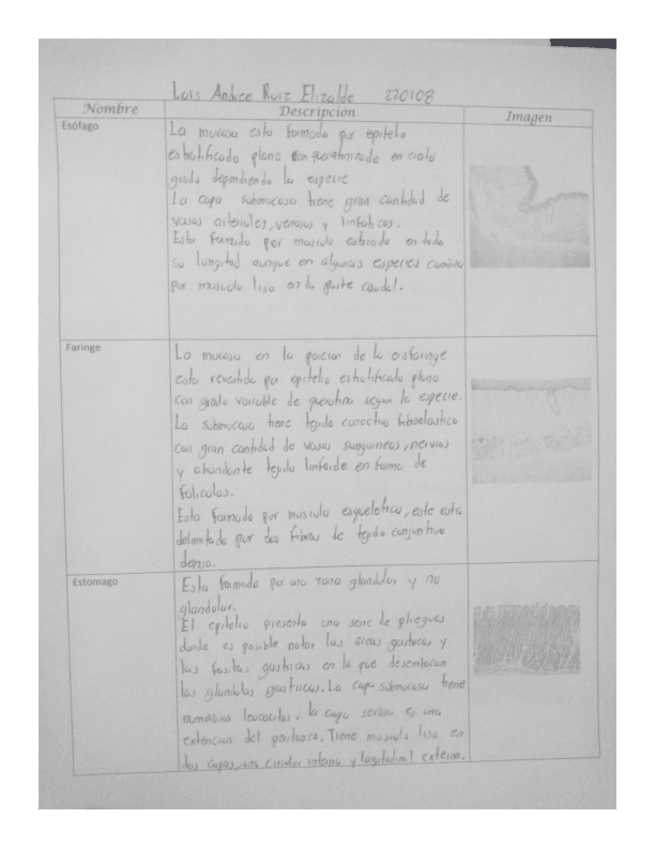 Luis Andree Ruiz Elizalde 220108
Nombre Descripción Imagen
Esófago
La mucosa esta formada por epitelio
estratificado plano con queratinizado en cierto
grado dependiendo la especie
La capa submucosa tiene gran cantidad de
vasos arteriales, venosos y linfaticos.
Esta formado por musculo estriado en toda
su longitud aunque en algunas especies cambia
por musculo liso en la parte caudal.
Faringe
La mucosa en la porcion de la orofaringe
esta revestida por epitelio estratificado plano
con grado variable de queratina segun la especie.
La submucosa tiene tejido conectivo fibroelastico
con gran cantidad de vasos sanguineos, nervios
y abundante tejido linfoide en forma de
foliculos.
Esta formada por musculo esqueletico, este esta
delimitado por dos fibras de tejido conjuntivo
denso.
Estomago
Esta formado por una zona glandular y no
glandular.
El epitelio presenta una serie de pliegues
donde es posible notar las areas gastricas y
las fositas gastricas en la que desembocan
las glandulas gastricas. La capa submucosa tiene
numerosos leucocitos. la capa serosa es una
extencion del peritoneo. Tiene musculo liso en
dos capas, una circular interna y logitudinal externa.